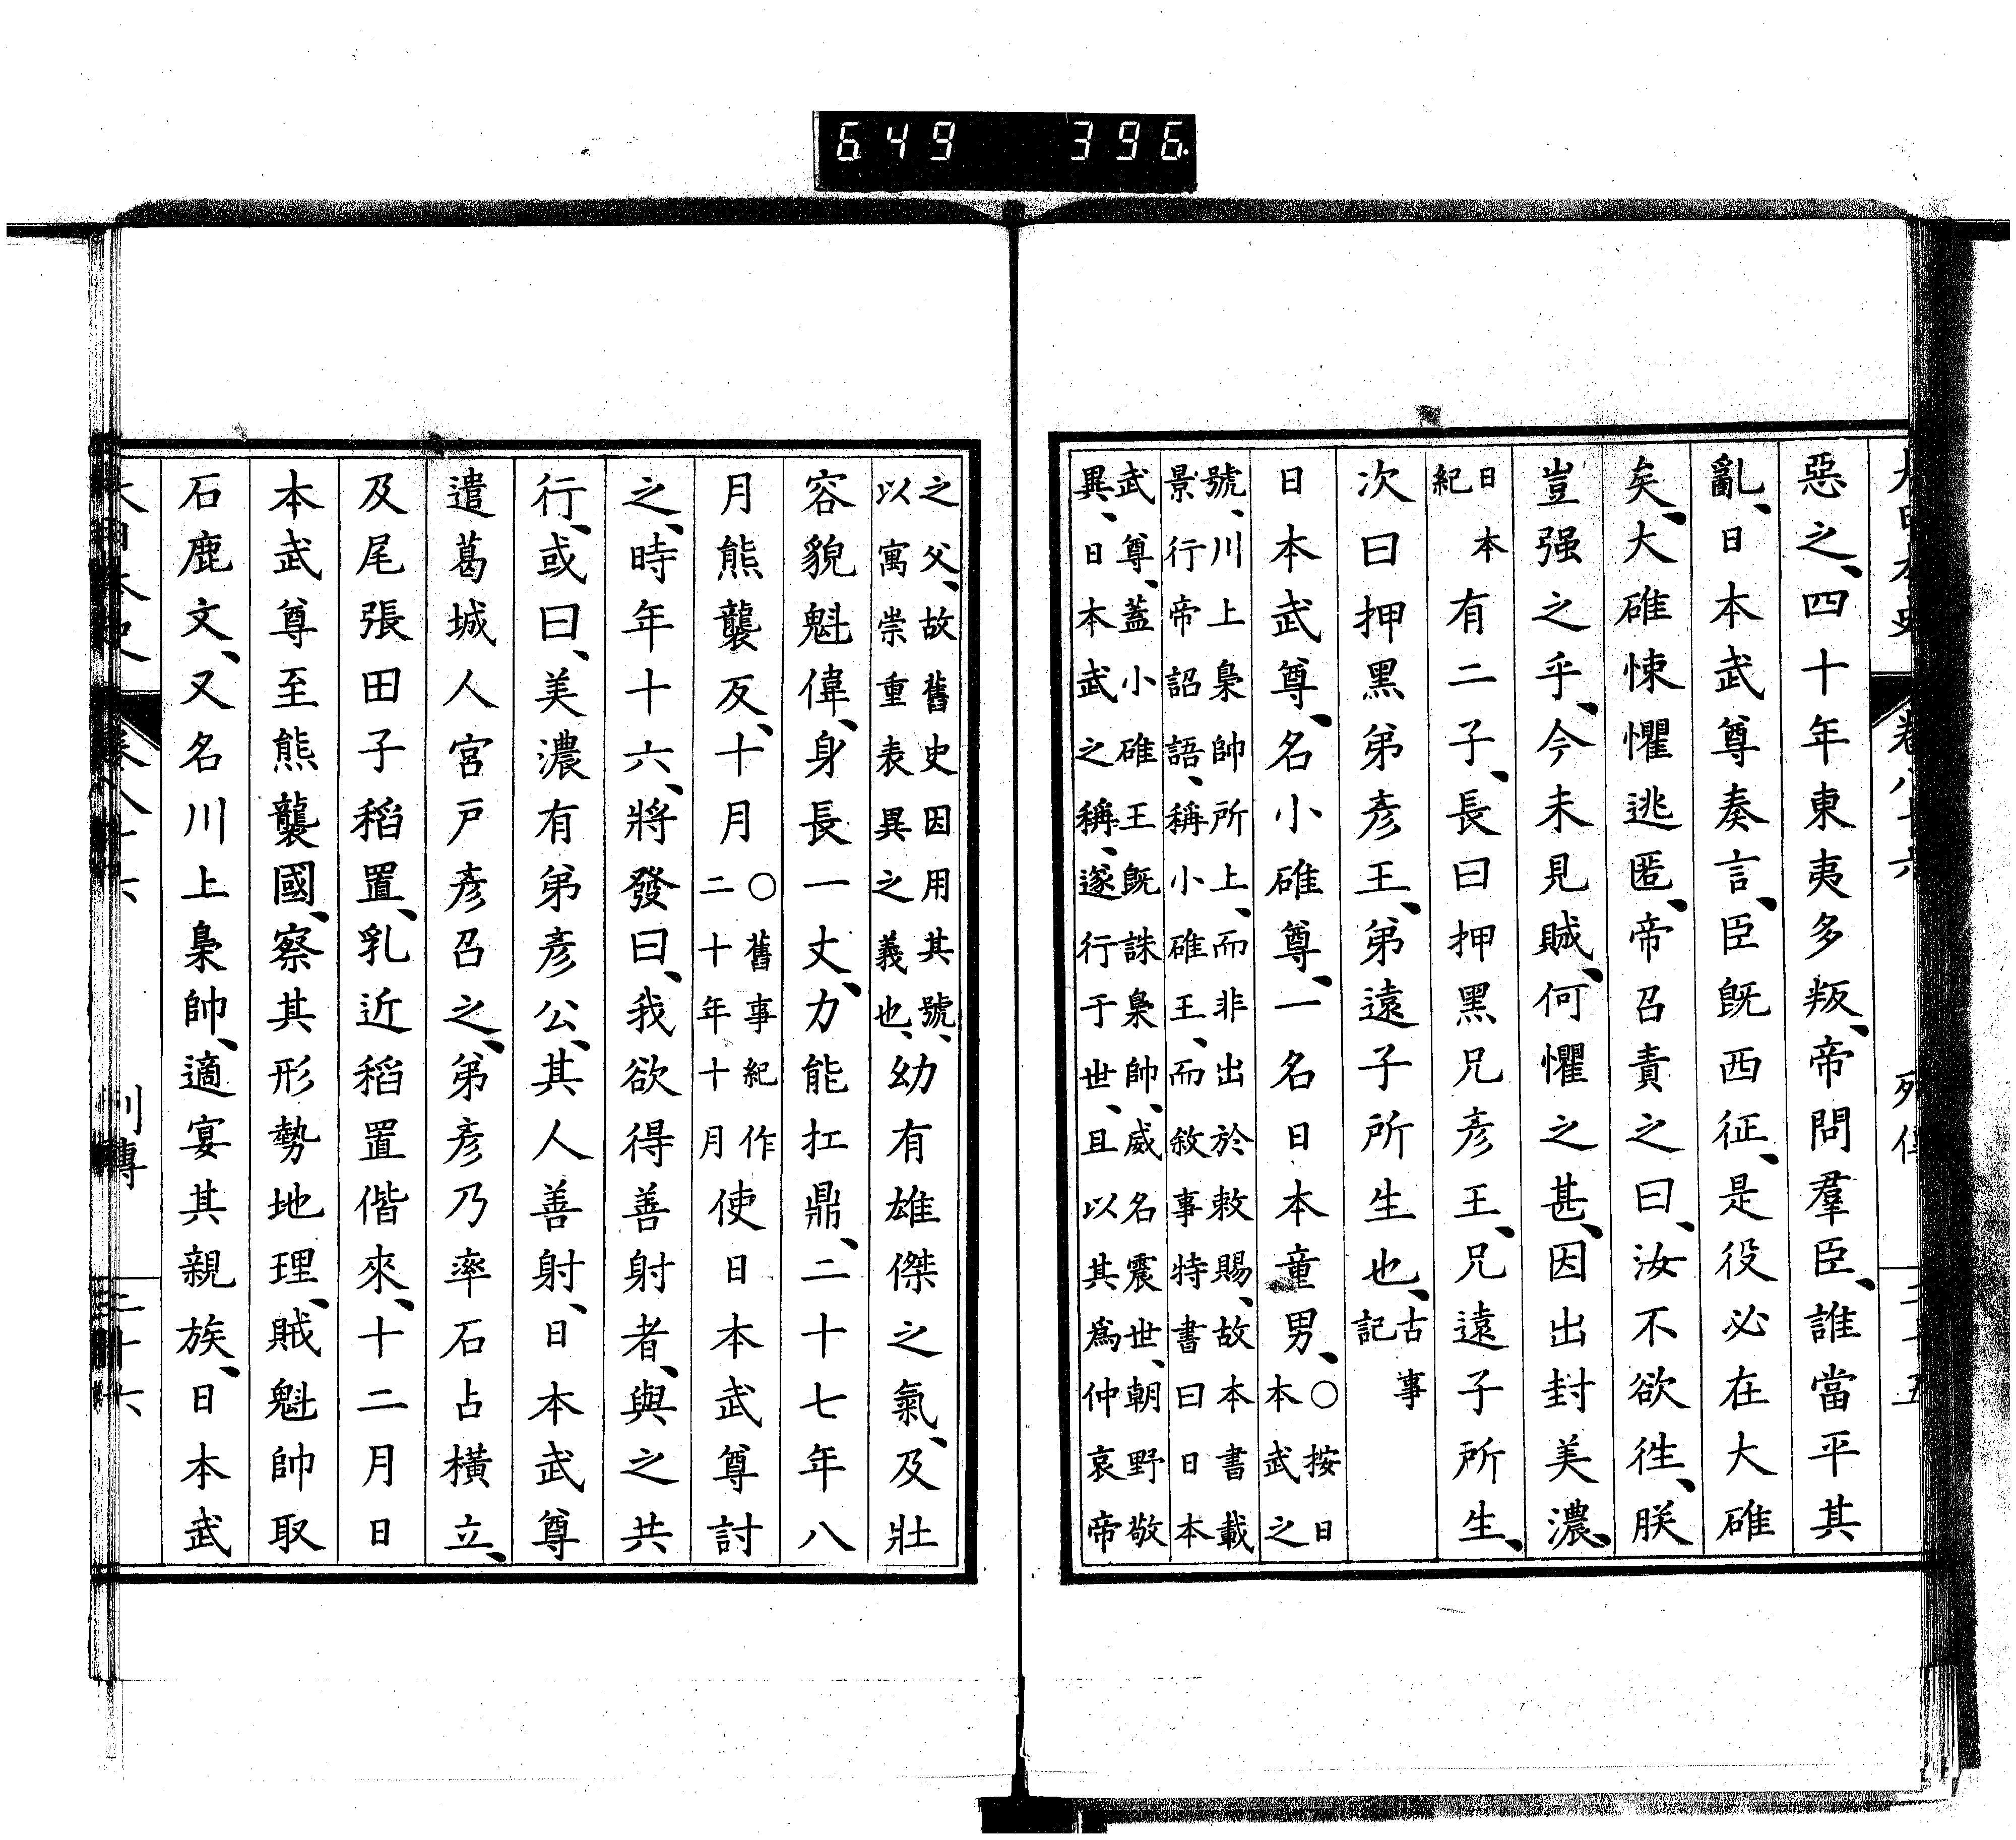 649 396
大日本史 卷八十六 列傳 二十五
惡之、四十年東夷多叛、帝問羣臣、誰當平其
亂、日本武尊奏言、臣既西征、是役必在大碓
矣、大碓悚懼逃匿、帝召責之曰、汝不欲往、朕
豈强之乎、今未見賊、何懼之甚、因出封美濃、
日本紀有二子、長曰押黑兄彥王、兄遠子所生、
次曰押黑弟彥王、弟遠子所生也、古事記
日本武尊、名小碓尊、一名日本童男、○按日本武之
號、川上梟帥所上、而非出於敕賜、故本書載
景行帝詔語、稱小碓王、而敘事特書曰日本
武尊、蓋小碓王既誅梟帥、威名震世、朝野敬
異、日本武之稱、遂行于世、且以其爲仲哀帝
之父、故舊史因用其號、
以寓崇重表異之義也、幼有雄傑之氣、及壯
容貌魁偉、身長一丈、力能扛鼎、二十七年八
月熊襲反、十月○舊事紀作二十年十月使日本武尊討
之、時年十六、將發曰、我欲得善射者、與之共
行、或曰、美濃有弟彥公、其人善射、日本武尊
遣葛城人宮戶彥召之、弟彥乃率石占橫立、
及尾張田子稻置、乳近稻置偕來、十二月日
本武尊至熊襲國、察其形勢地理、賊魁帥取
石鹿文、又名川上梟帥、適宴其親族、日本武
大日本史 卷八十六 列傳 二十六